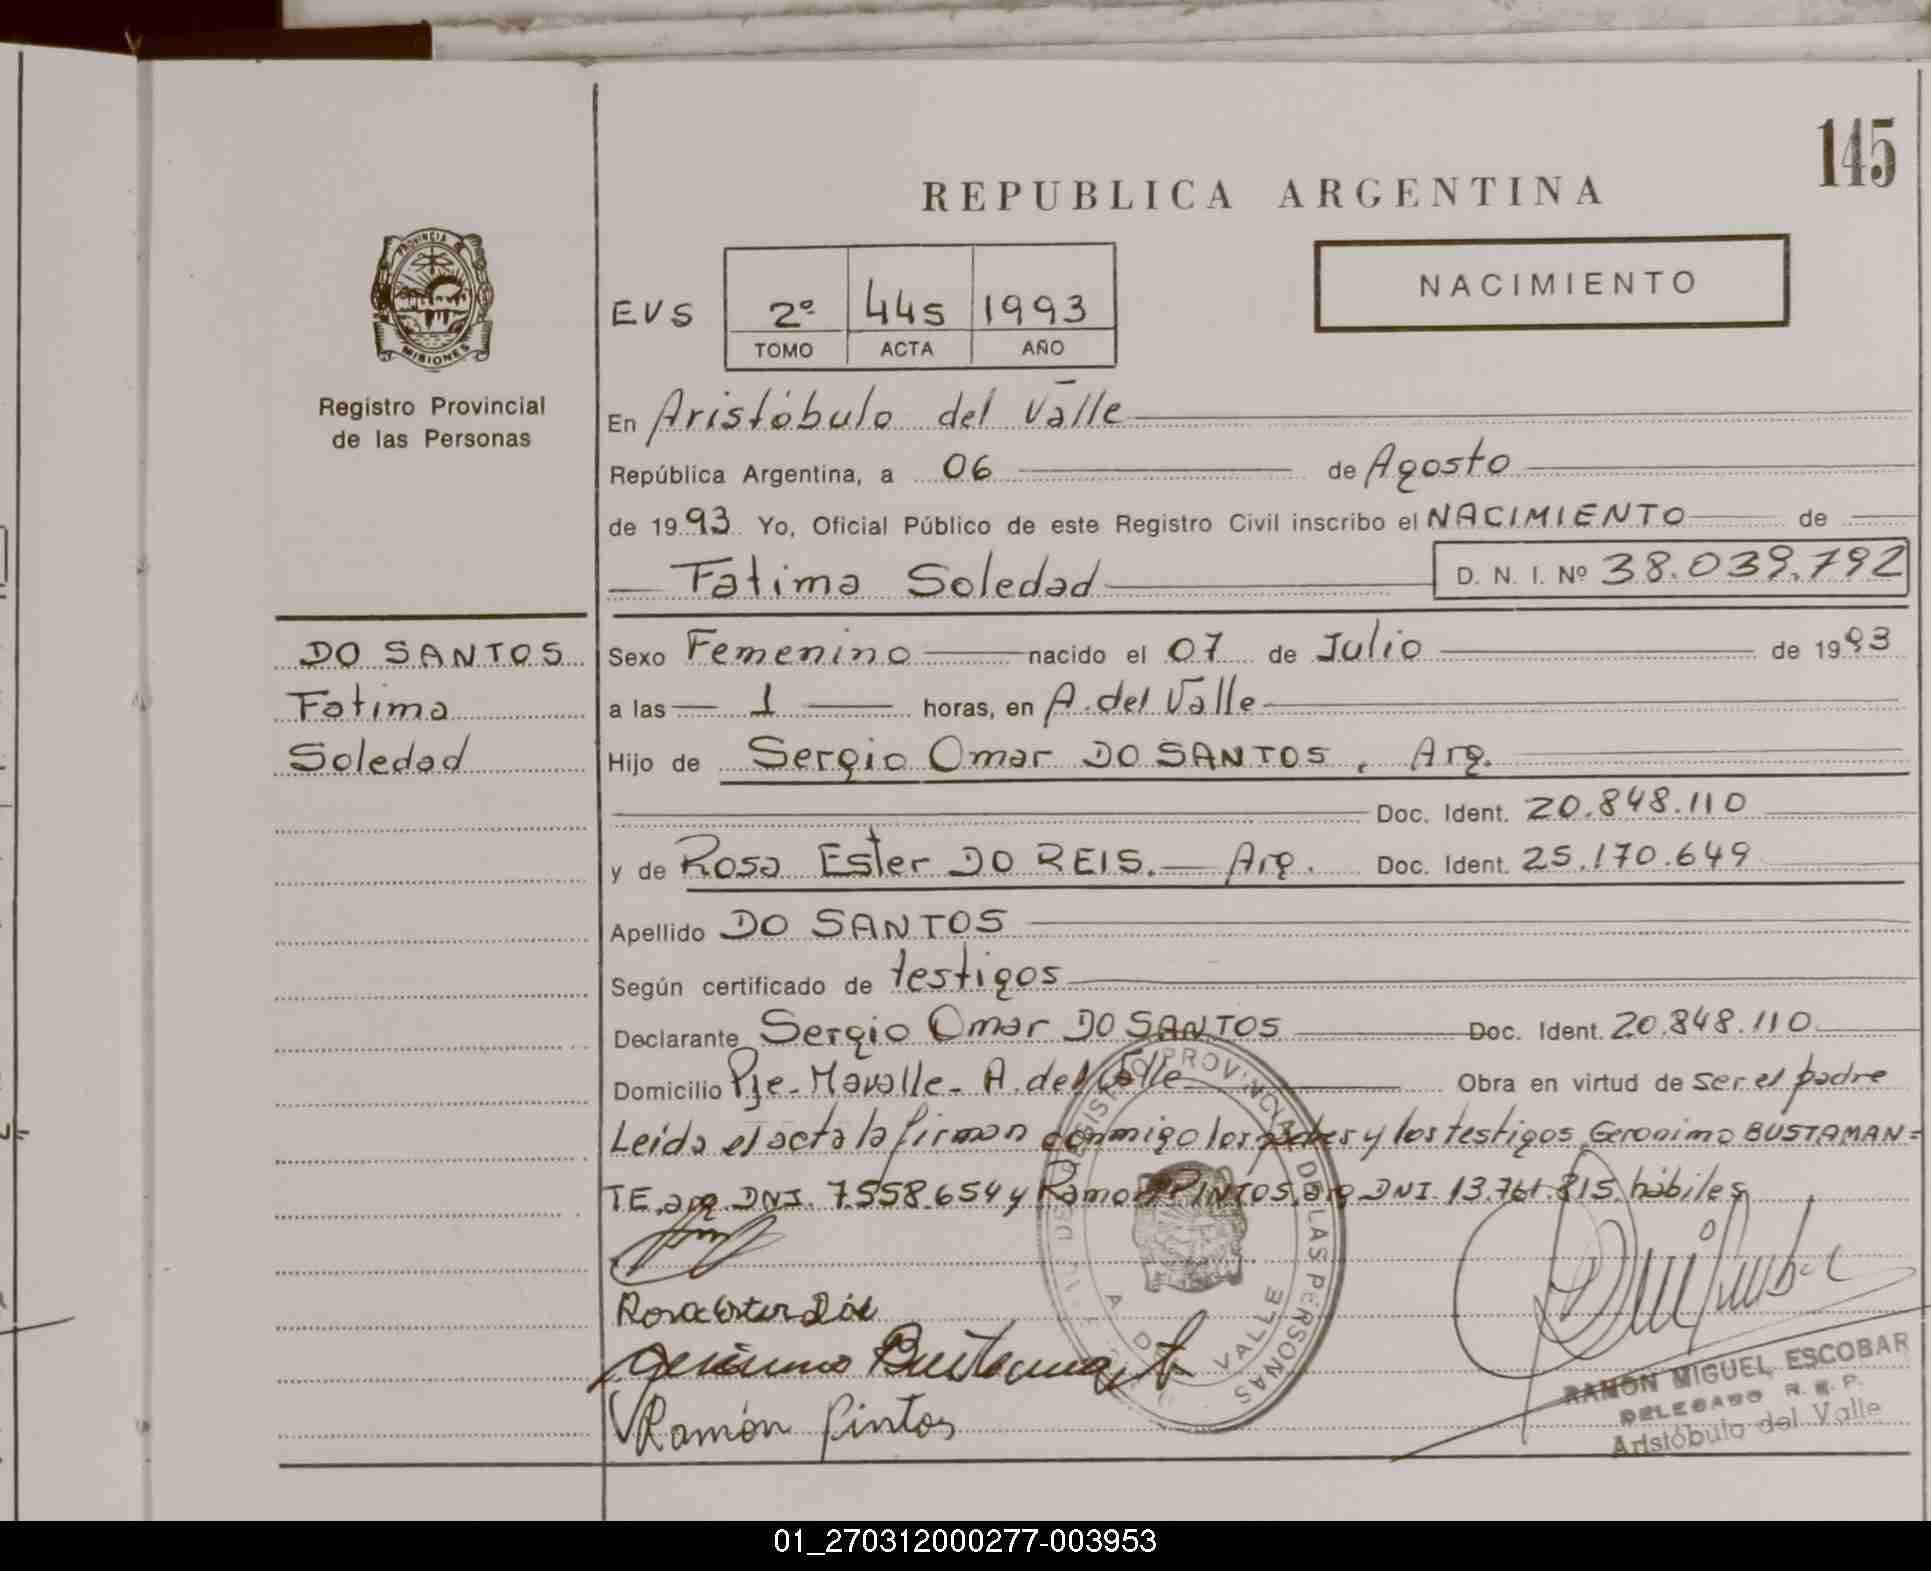 145
REPUBLICA ARGENTINA
PROVINCIA DE
MISIONES
Registro Provincial
de las Personas
EVS 2º 445 1993
TOMO ACTA AÑO
NACIMIENTO
En Aristóbulo del Valle
República Argentina, a 06 de Agosto
de 1993 Yo, Oficial Público de este Registro Civil inscribo el NACIMIENTO de
Fatima Soledad D. N. I. Nº 38.039.792
DO SANTOS
Fatima
Soledad
Sexo Femenino nacido el 07 de Julio de 1993
a las 1 horas, en A. del Valle
Hijo de Sergio Omar DO SANTOS, Arg.
Doc. Ident. 20.848.110
y de Rosa Ester DO REIS. Arg. Doc. Ident. 25.170.649
Apellido DO SANTOS
Según certificado de testigos
Declarante Sergio Omar DO SANTOS Doc. Ident. 20.848.110
Domicilio Pje. Mavalle - A. del Valle Obra en virtud de ser el padre
Leida el acta la firman conmigo los padres y los testigos Geronimo BUSTAMAN=
TE, arg. DNI. 7.558.654 y Ramon PINTOS, arg DNI. 13.761.815. hábiles
Rosa Ester
Geronimo Bustamante
Ramón Pintos
REGISTRO PROVINCIAL DE LAS PERSONAS
A. D VALLE
RAMON MIGUEL ESCOBAR
DELEGADO R. E. P.
Aristóbulo del Valle
01_270312000277-003953